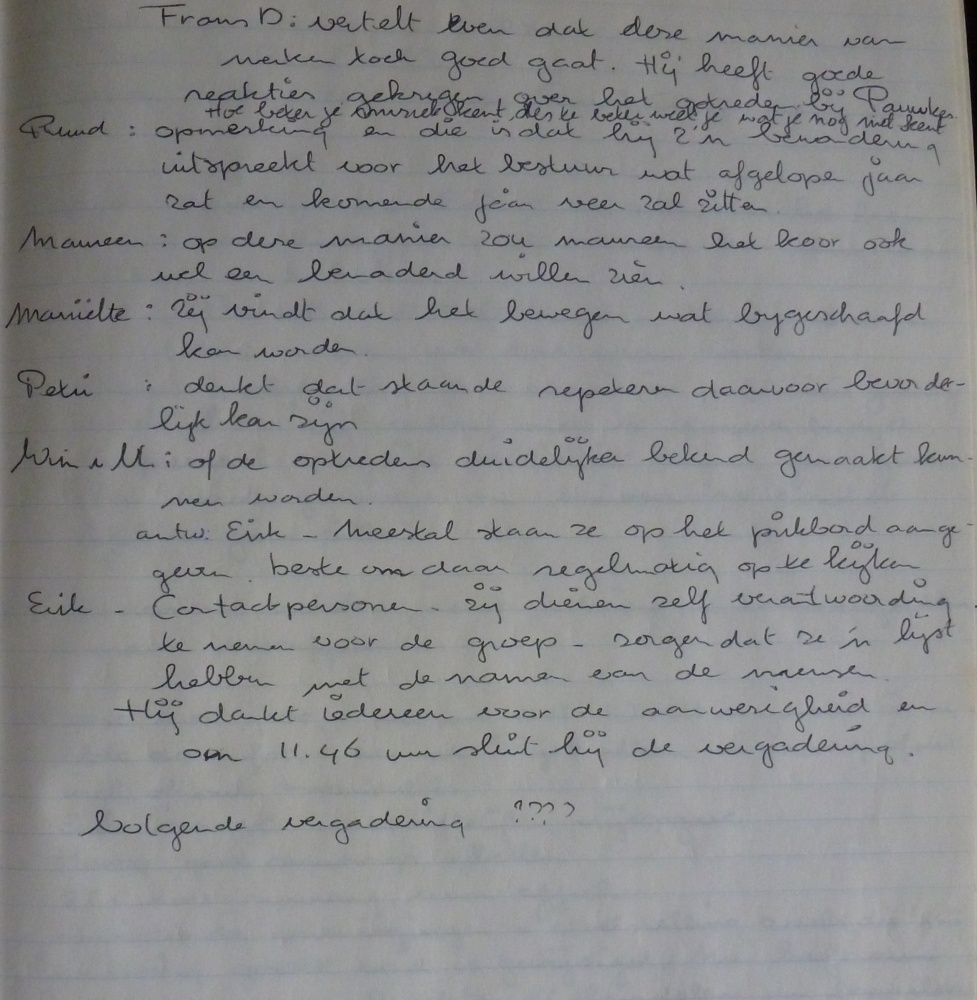 Frans D: vertelt even dat deze manier van
werken toch goed gaat. Hij heeft goede
reakties gekregen over het optreden bij Pauwken
Hoe beter je smuziek kent, des te beter weet je wat je nog niet kent
Ruud : opmerking en die is dat hij z'n bewondering
uitspreekt voor het bestuur wat afgelope jaar
zat en komende jaar weer zal zitten.
Maureen : op deze manier zou maureen het koor ook
wel een benaderd willen zien.
Mariëtte : zij vindt dat het bewegen wat bygeschaafd
kan worden.
Petri : denkt dat staande repeteren daarvoor bevorder-
lijk kan zijn
Wim v M : of de optredens duidelijker bekend gemaakt kun-
nen worden.
antw. Erik - Meestal staan ze op het prikbord aange-
geven. beste om daar regelmatig op te kijken
Erik - Contactpersonen - zij dienen zelf verantwoording
te nemen voor de groep - zorgen dat ze 'n lijst
hebben met de namen van de mensen.
Hij dankt iedereen voor de aanwezigheid en
om 11.46 uur sluit hij de vergadering.
Volgende vergadering ????